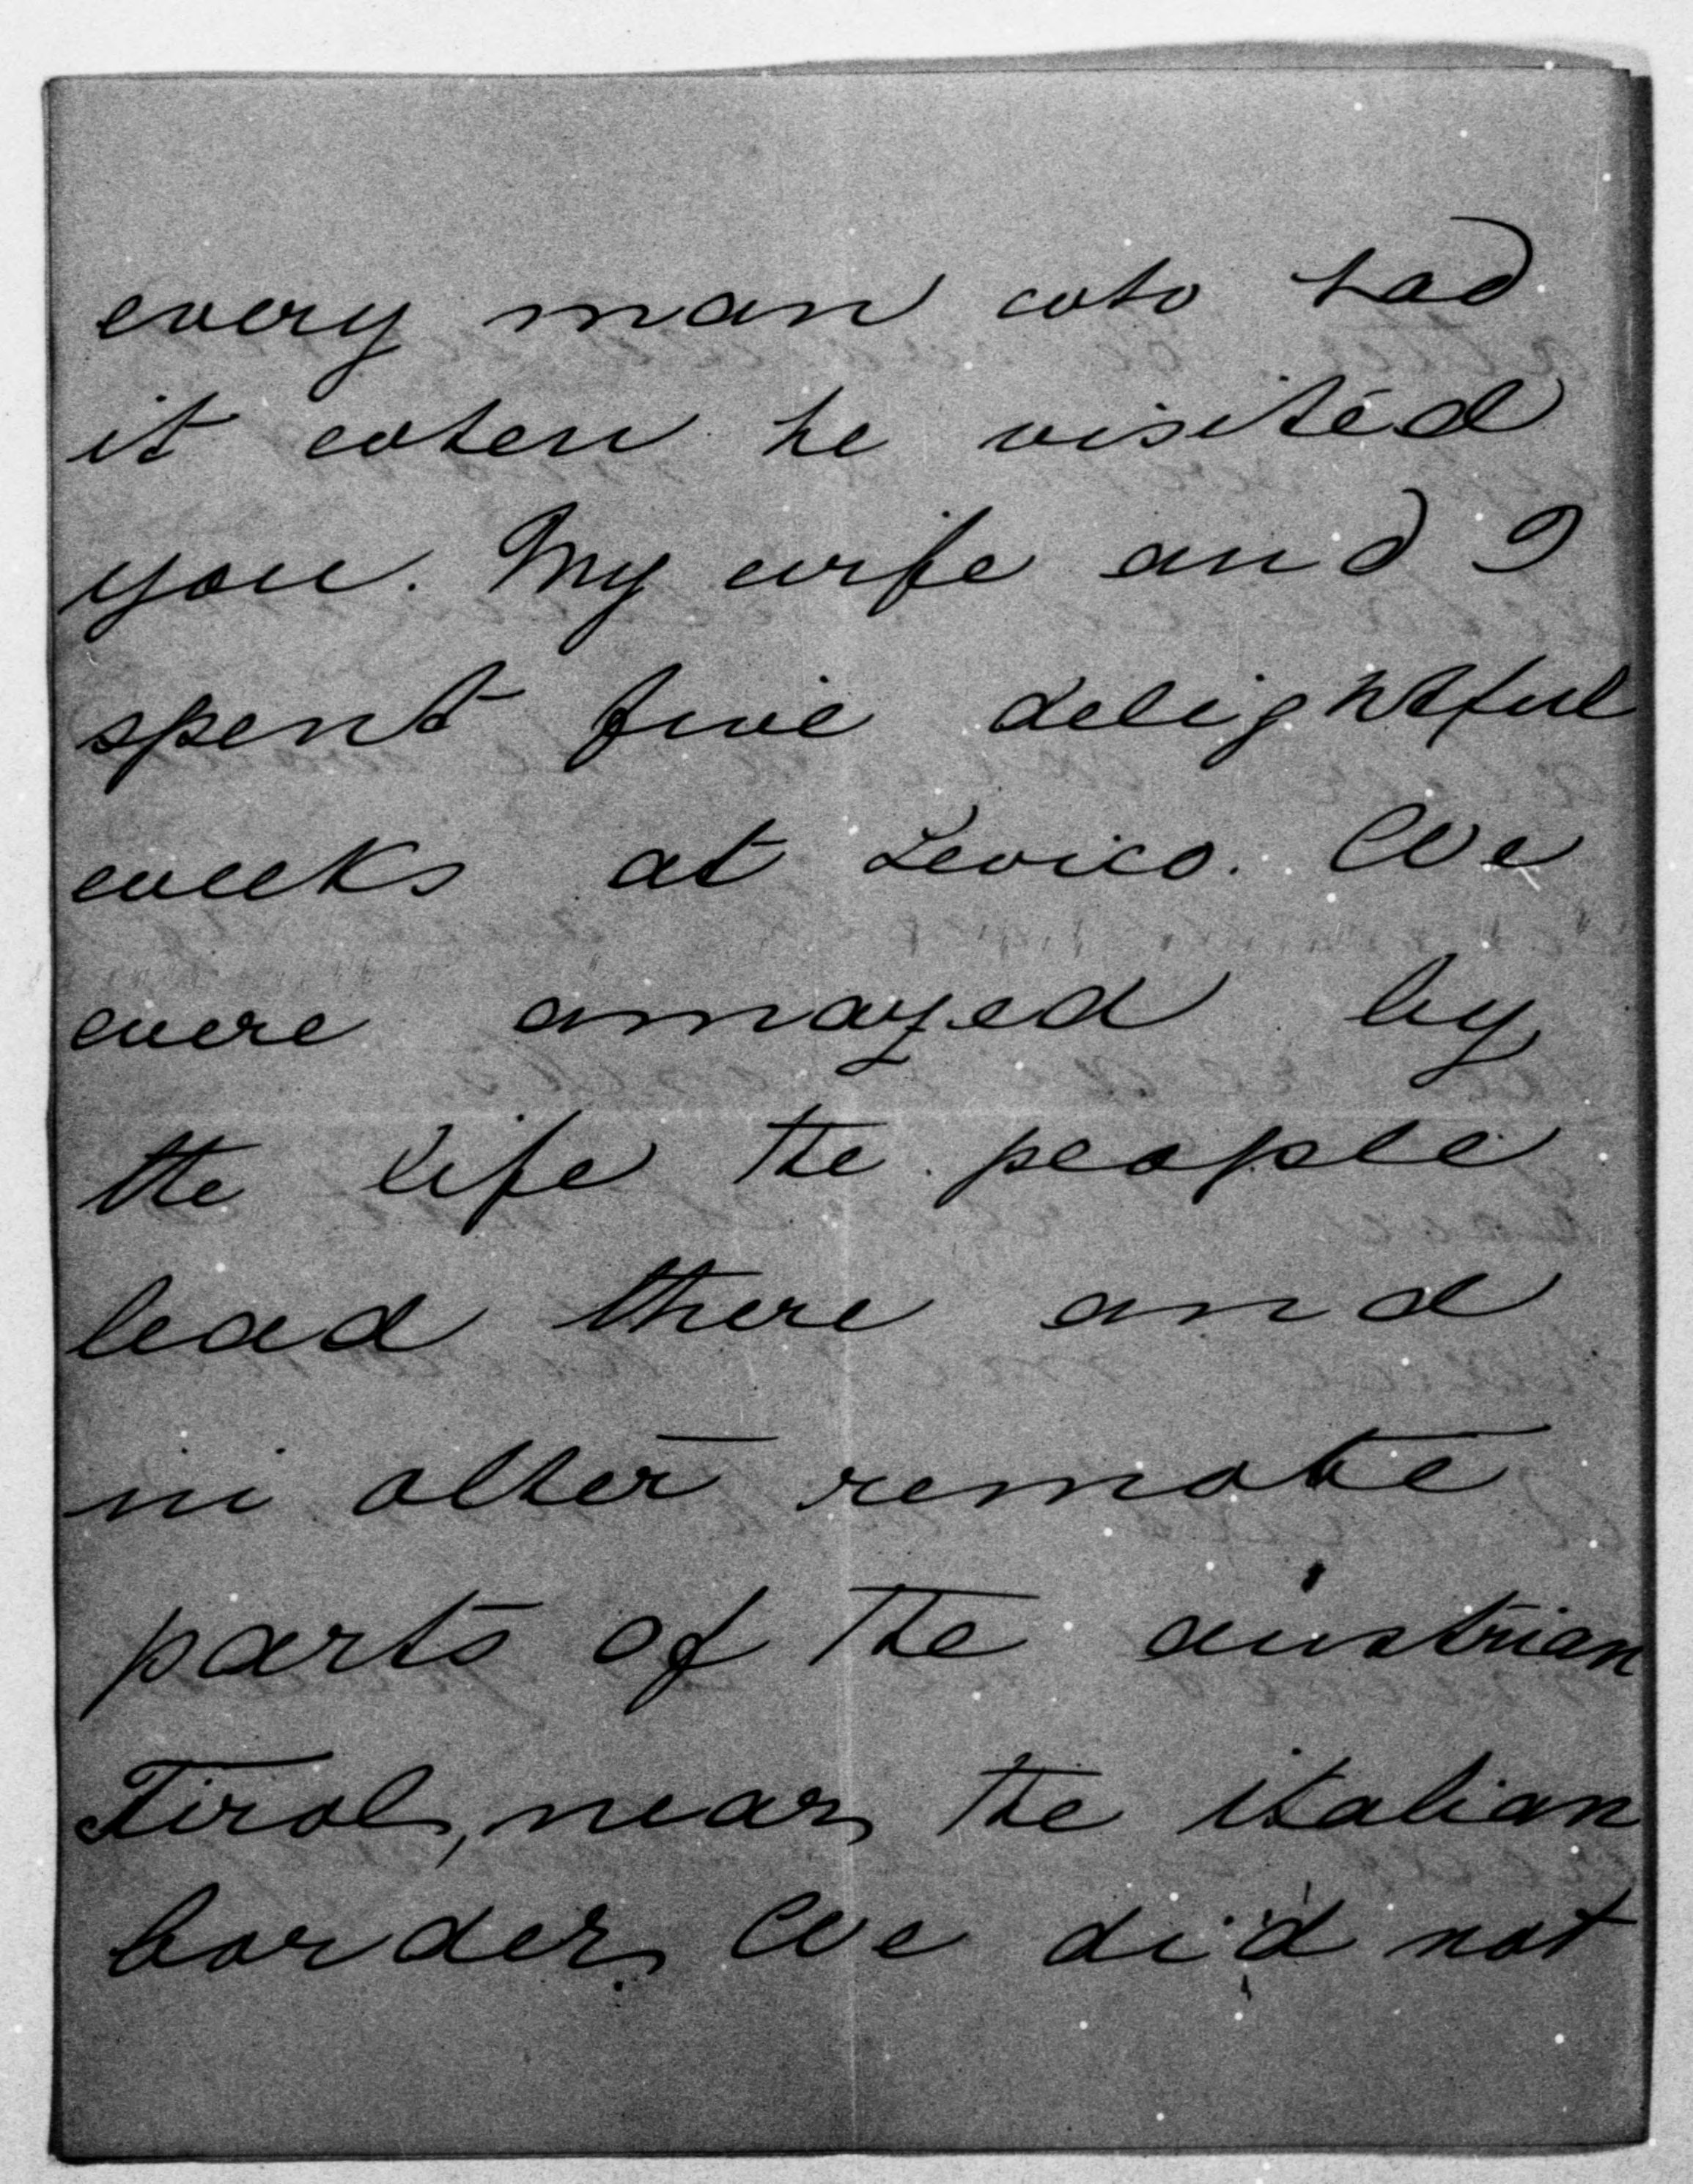 every man who had
it when he visited
you. My wife and I
spent five delightful
weeks at Levico. We
were amazed by
the life the people
lead there and
in other remote
parts of the austrian
Tirol, near the italian
border. We did not